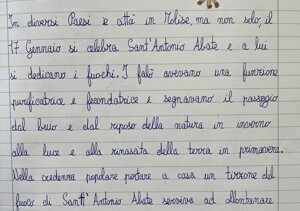 In diversi Paesi e città in Molise, ma non solo, il
17 Gennaio si celebra Sant'Antonio Abate e a lui
si dedicano i fuochi. I falò avevano una funzione
purificatrice e fecondatrice e segnavano il passaggio
dal buio e dal riposo della natura in inverno
alla luce e alla rinascita della terra in primavera.
Nella credenza popolare portare a casa un tizzone del
fuoco di Sant' Antonio Abate serviva ad allontanare